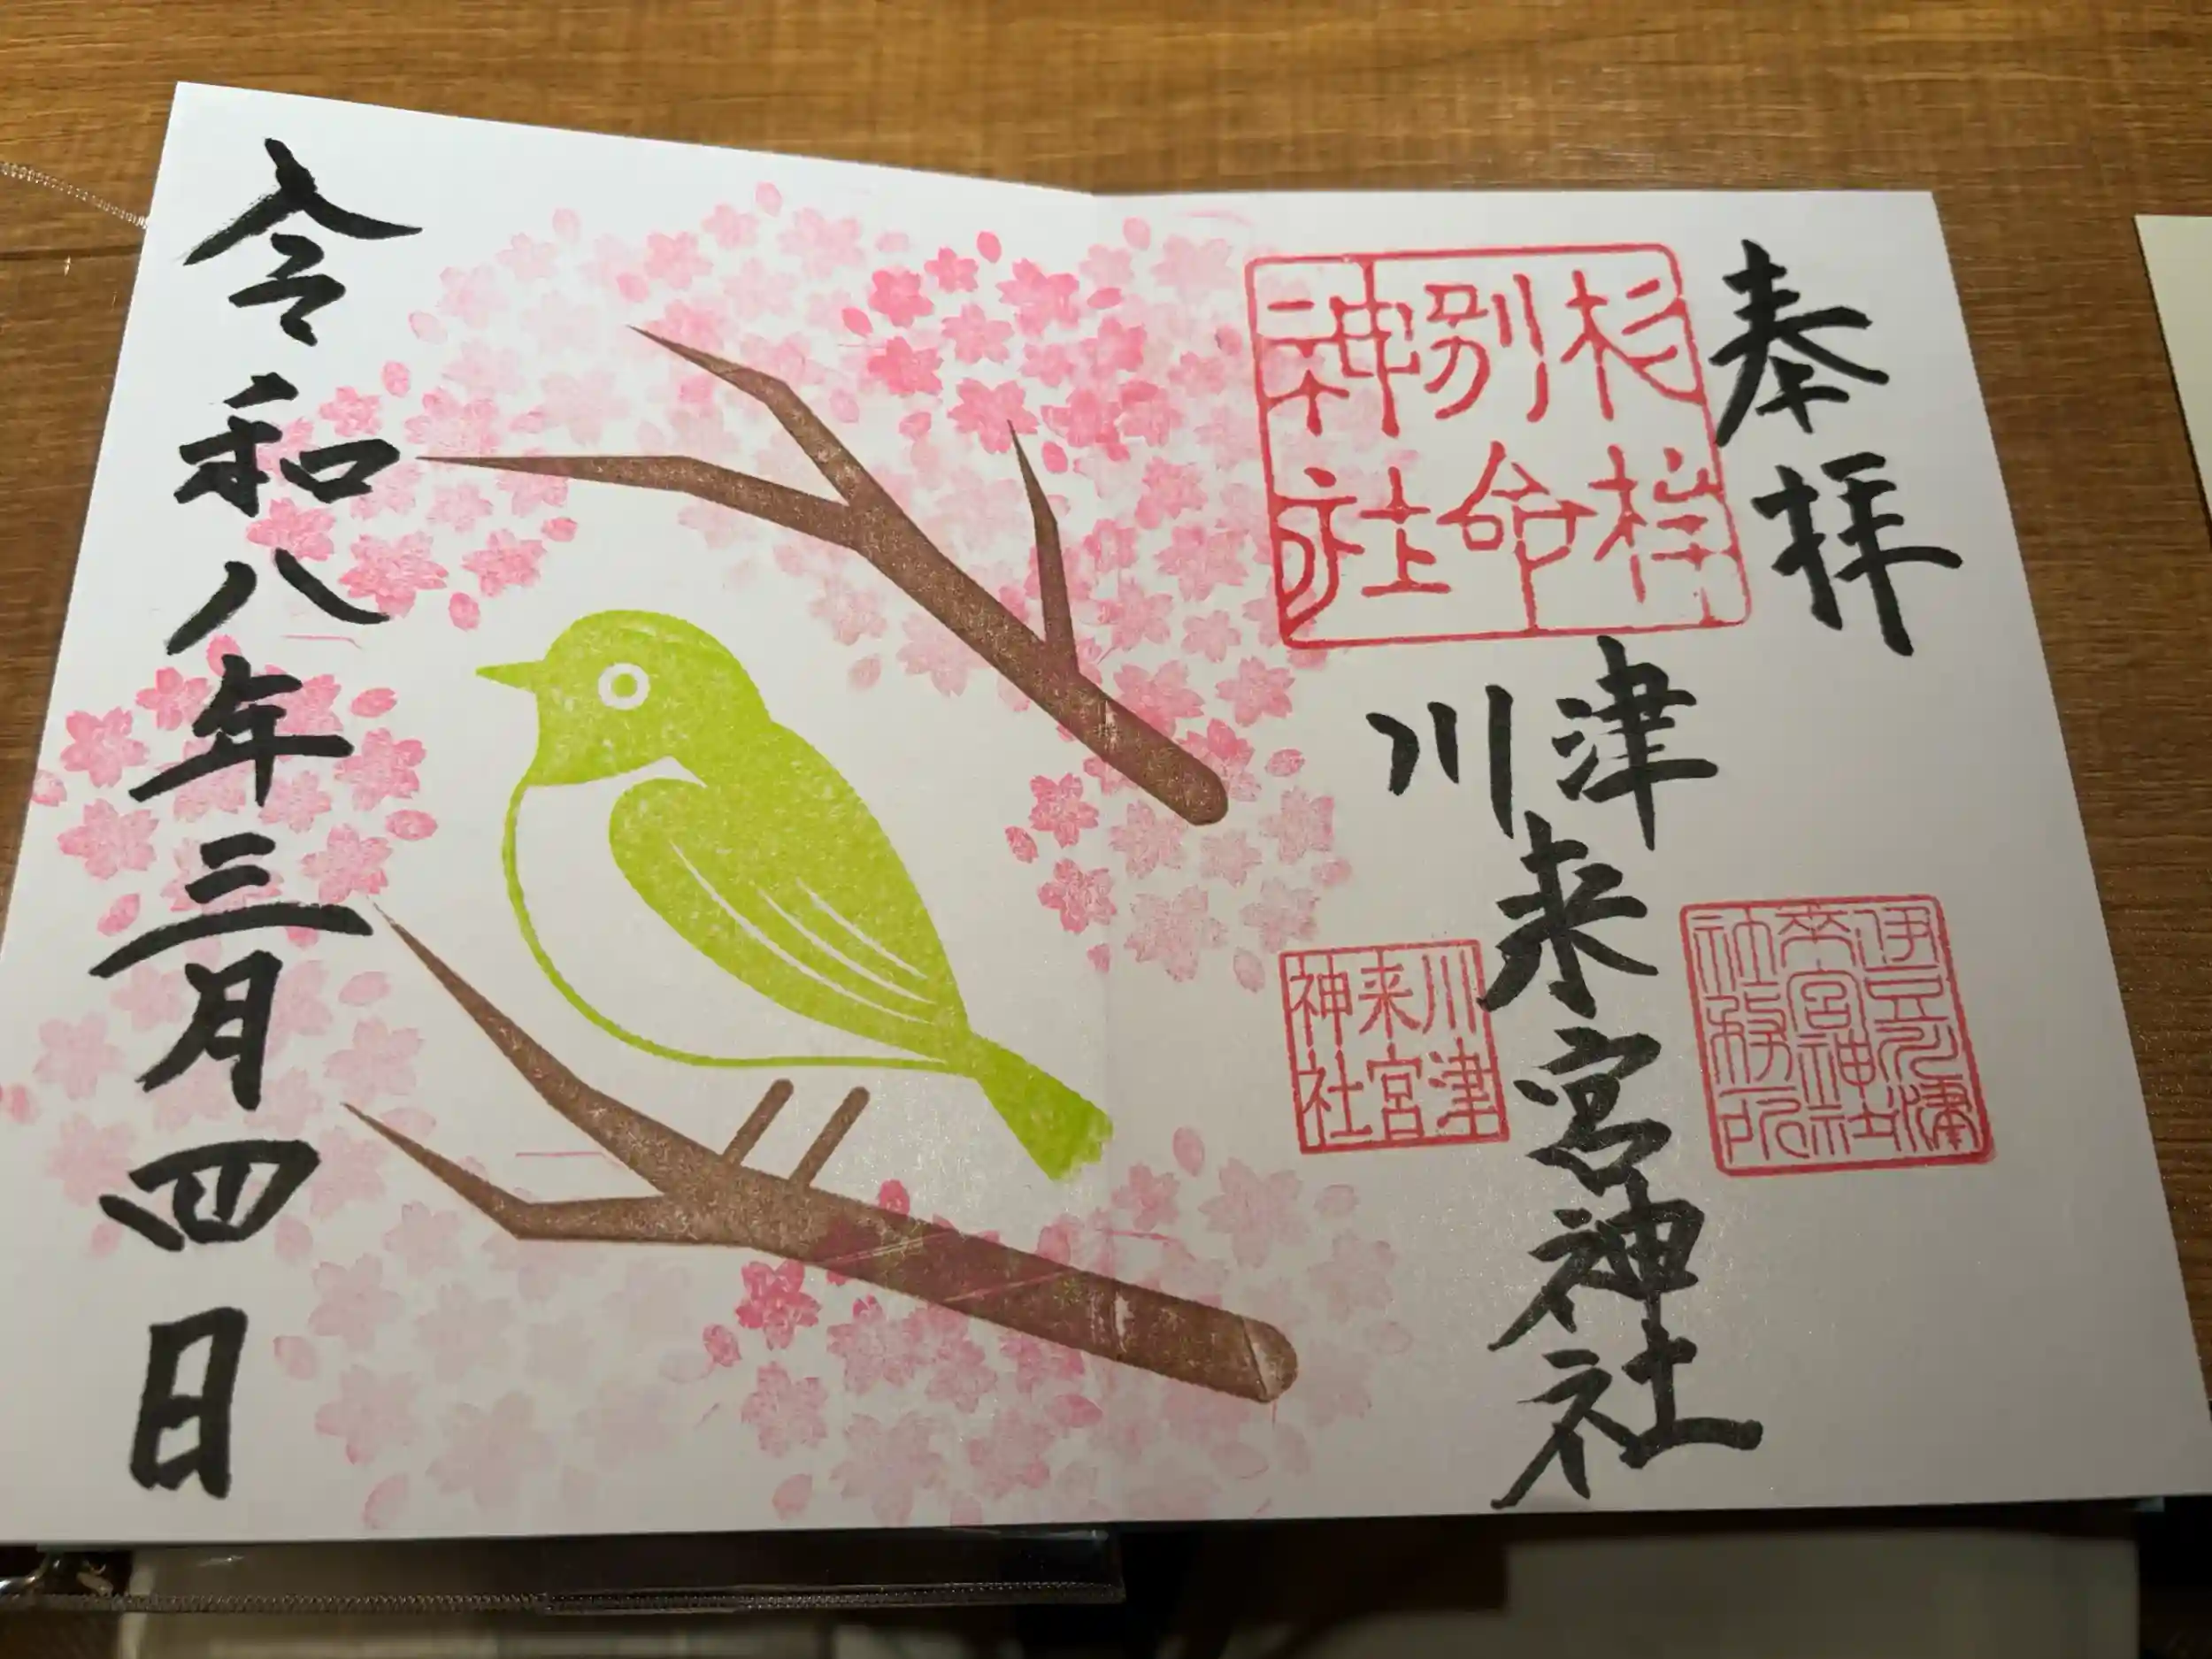 奉拝
杉桙
別命
神社
川津
来宮神社
川津
来宮
神社
伊豆国
来宮神社
社務所
令和八年三月四日